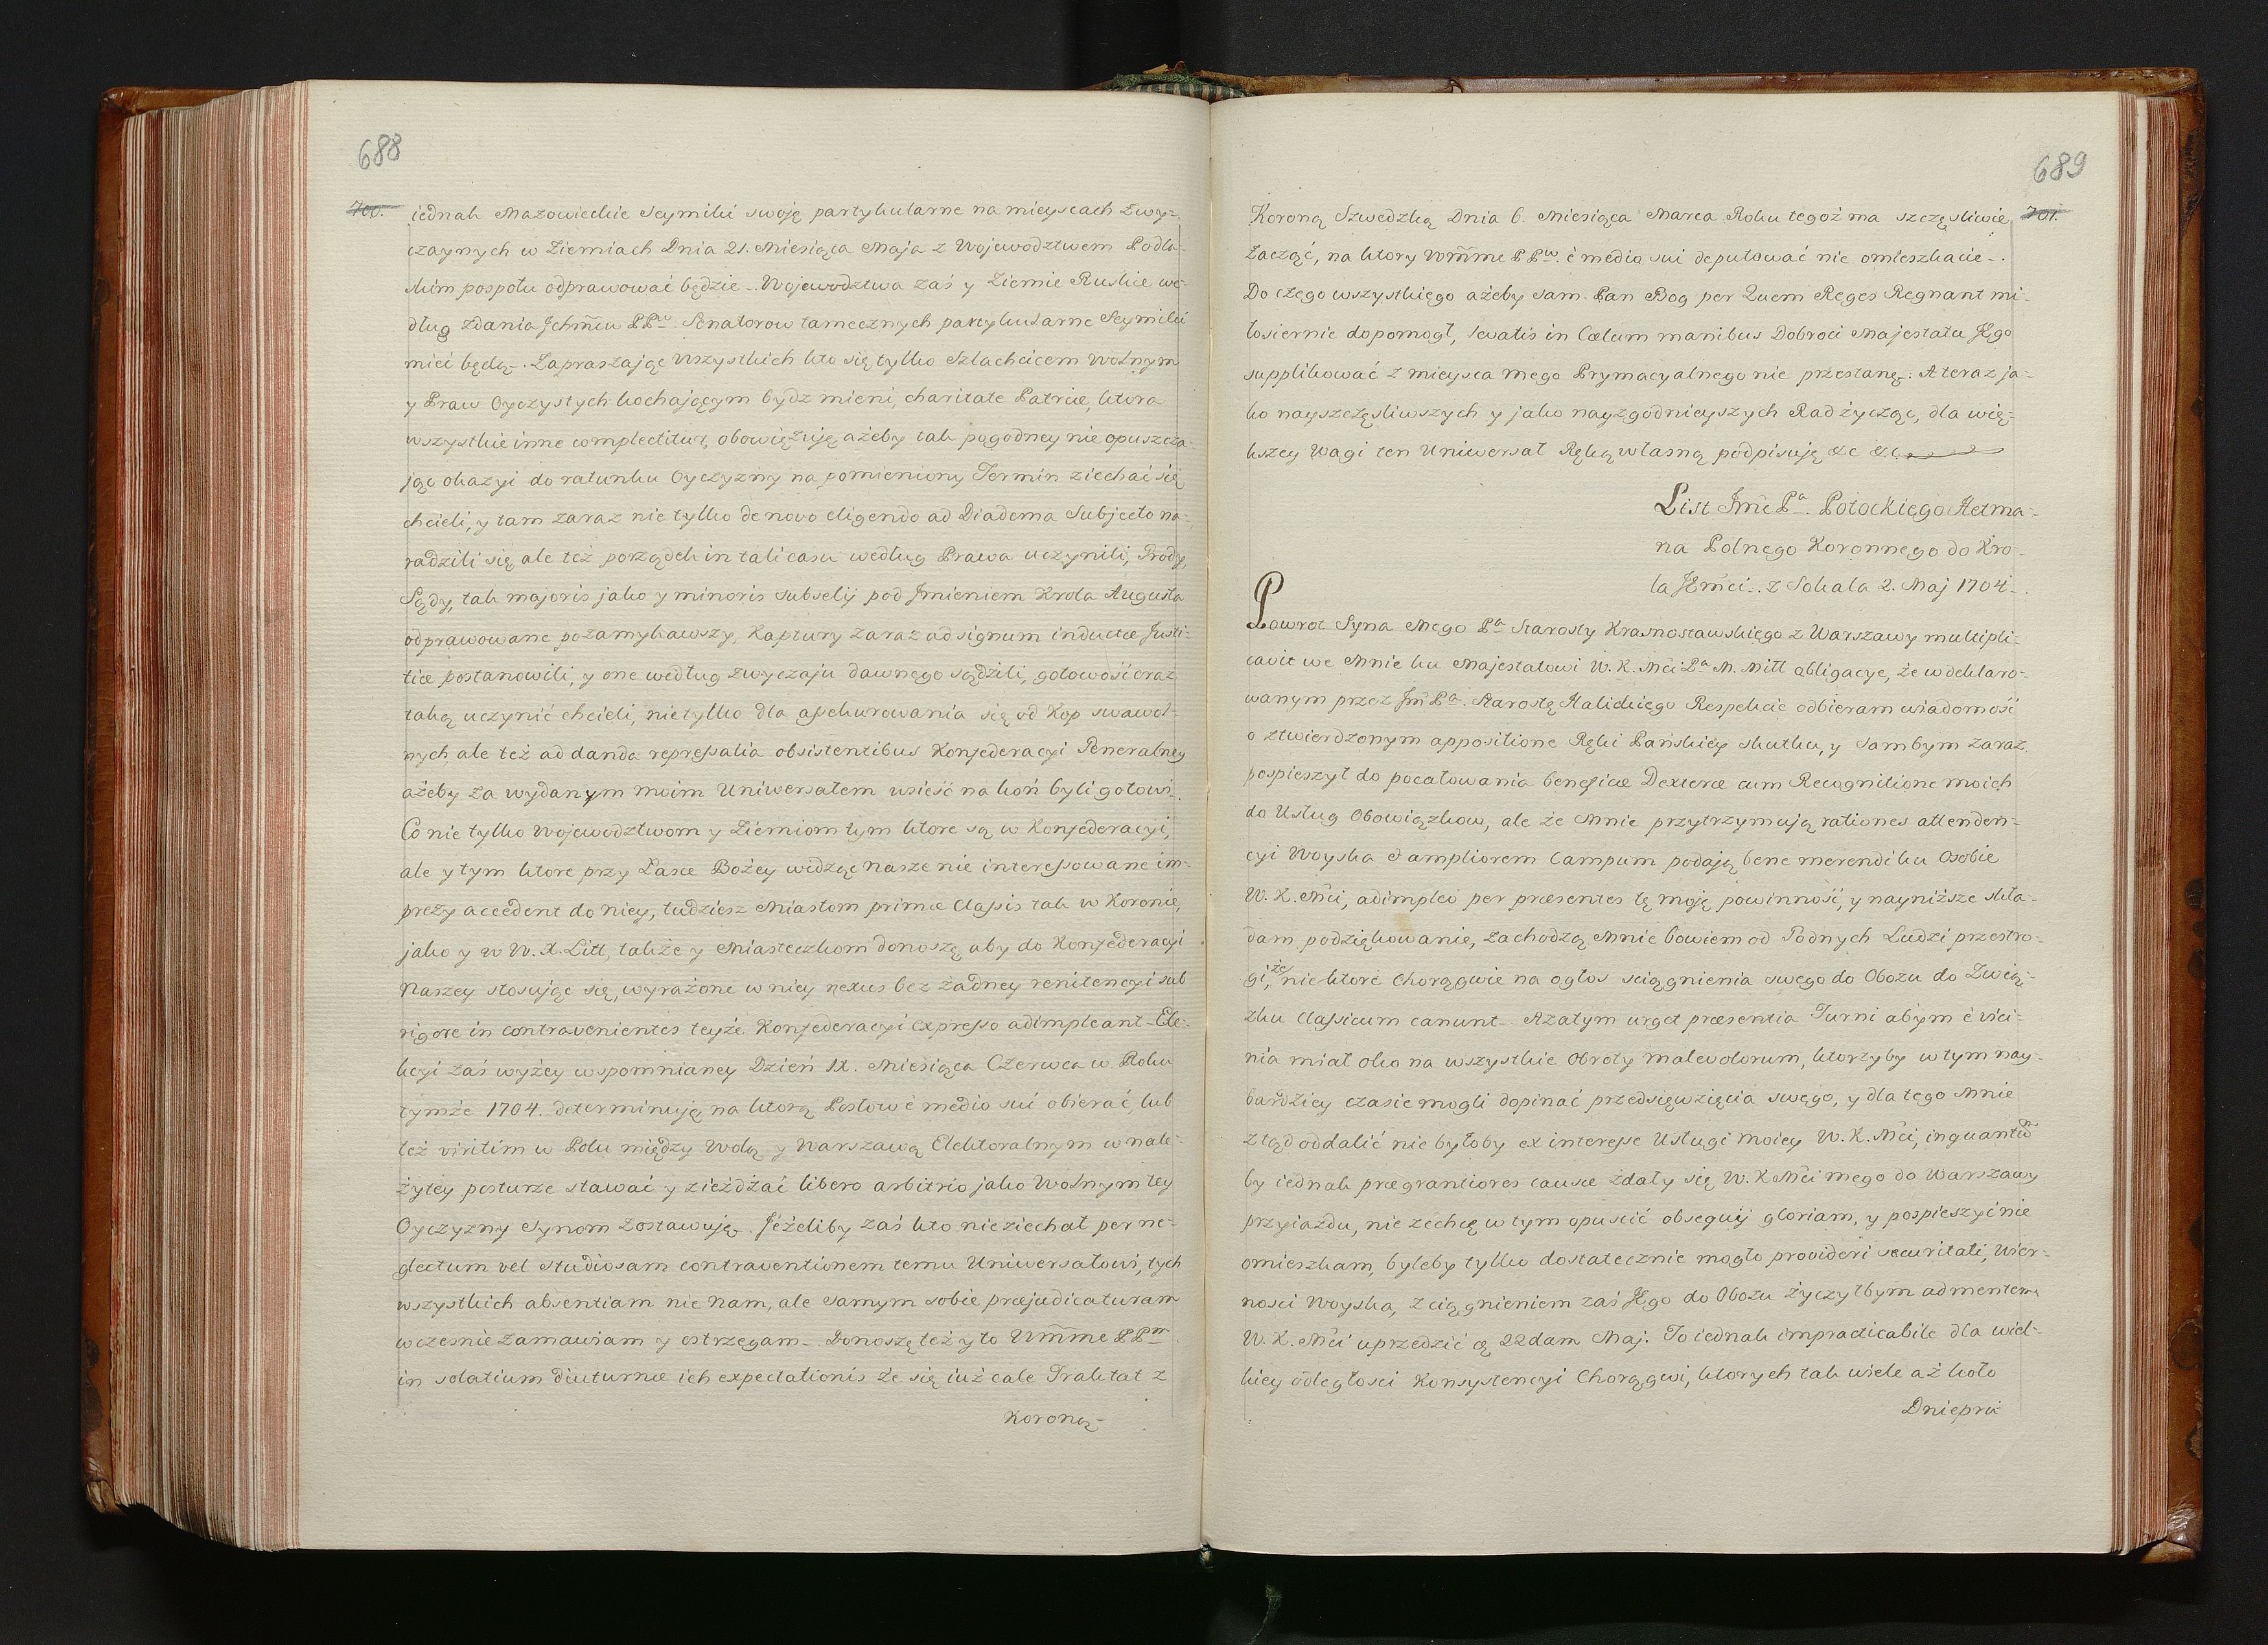 688
700. iednak Mazowieckie Seymiki swoję partykularne na mieyscach zwy-
czaynych w Ziemiach Dnia 21. Miesiąca Maja z Wojewodztwem Podla-
skim pospołu odprawować będzie. Wojewodztwa zaś y Ziemie Ruskie we-
dług zdania Ichm̃ciu PPw Senatorow tamecznych partykularne Seymiki
mieć będą. Zapraszając wszystkich kto się tylko Szlachcicem Wolnym
y Praw Oyczystych kochającym bydz mieni, charitate Patriæ, ktora
wszystkie inne complectitur, obowięzuję ażeby tak pogodney nie opuszcza-
jąc okazyi do ratunku Oyczyzny na pomieniony Termin ziechać się
chcieli, y tam zaraz nie tylko de novo eligendo ad Diadema Subjecto na-
radzili się, ale też porządek in tali casu według Prawa uczynili, Grody,
Sądy, tak majoris jako y minoris subselij pod Jmieniem Krola Augusta
odprawowane pozamykawszy, Kaptury zaraz ad signum inductæ Justi-
tiæ postanowili, y one według zwyczaju dawnego sądzili, gotowość oraz
taką uczynić chcieli, nietylko dla assekurowania się od Kop swawol-
nych, ale też ad danda repressalia obsistentibus Konfederacyi Generalney
ażeby za wydanym moim Uniwersałem wsieść na koń byli gotowi.
Co nie tylko Wojewodztwom y Ziemiom tym ktore są w Konfederacyi,
ale y tym ktore przy Łasce Bożey widząc nasze nie interessowane im-
prezy accedent do niey, tudziesz Miastom primæ Classis tak w Koronie,
jako y w W. X. Litt, także y Miasteczkom donoszę, aby do Konfederacyi
Naszey stosując się, wyrażone w niey nexus bez żadney renitencyi sub
rigore in contravenientes teyże Konfederacyi expresso adimpleant. Ele-
kcyi zaś wyżey wspomnianey Dzień IX. Miesiąca Czerwca w Roku
tymże 1704. determinuję, na ktorą Posłow è medio sui obierać, lub
też viritim w Polu między Wolą y Warszawą Elektoralnym w nale-
żytey posturze stawać y zieżdżać libero arbitrio jako Wolnym tey
Oyczyzny Synom zostawuję. Jeżeliby zaś kto nie ziechał per ne-
glectum vel studiosam contraventionem temu Uniwersałowi, tych
wszystkich absentiam nie nam, ale samym sobie præjudicaturam
wcześnie zamawiam y ostrzegam. Donoszę też y to Wm̃me PPm
in solatium diuturnæ ich expectationis że się iuż cale Traktat z
Koroną
689
Koroną Szwedzką Dnia 6. Miesiąca Marca Roku tegoż ma szczęsliwie 701.
zacząć, na ktory Wm̃me PPw è medio sui deputować nie omieszkacie.
Do czego wszystkiego ażeby sam Pan Bog per Quem Reges Regnant mi-
łosiernie dopomogł, levatis in Cœlum manibus Dobroci Majestatu Jego
supplikować z mieysca mego Prymacyalnego nie przestanę. A teraz ja-
ko nayszczęsliwszych y jako nayzgodnieyszych Rad życząc, dla wię-
kszey Wagi ten Uniwersał Ręką własną podpisuję &c &c
List Jm̃c Pa. Potockiego Hetma-
na Polnego Koronnego do Kro-
la JEm̃ci. z Sokala 2. Maj 1704.
Powrot Syna Mego Pa Starosty Krasnostawskiego z Warszawy multipli-
cavit we Mnie ku Majestatowi W. K. Mc̃i Pa M. Mitt obligacye, że w deklaro-
wanym przez Jm̃ Pa. Starostę Halickiego Respekcie odbieram wiadomość
o ztwierdzonym appositione Ręki Pańskiey skutku, y sam bym zaraz
pospieszył do pocałowania beneficæ Dexteræ cum Recognitione moich
do Usług Obowiązkow, ale że Mnie przytrzymują rationes attenden-
cyi Woyska & ampliorem Campum podają bene merendi ku Osobie
W. K. Mc̃i, adimpleo per præsentes tę moję powinność, y nayniższe skła-
dam podziękowanie, zachodzą Mnie bowiem od Godnych Ludzi przestro-
gi, że niektore Chorągwie na ogłos sciągnienia swego do Obozu do Zwią-
zku Classicum canunt. Azatym urget præsentia Turni abym è vici-
nia miał oko na wszystkie Obroty malevolorum, ktorzyby w tym nay-
bardziey czasie mogli dopinać przedsięwzięcia swego, y dla tego Mnie
ztąd oddalić nie byłoby ex interesse Usługi moiey W. K. Mc̃i, inquantũ
by iednak prægrantiores causæ zdały się W. K Mc̃i mego do Warszawy
przyiazdu, nie zechcę w tym opuscić obsequij gloriam, y pospieszyć nie
omieszkam, byleby tylko dostatecznie mogło provideri securitati, wier-
nosci Woyska, z ciągnieniem zaś Jego do Obozu życzyłbym ad mentem
W. K. Mc̃i uprzedzić ą 22dam Maj. To iednak impracticabile dla wiel-
kiey odległosci Konsystencyi Chorągwi, ktorych tak wiele aż koło
Dniepra